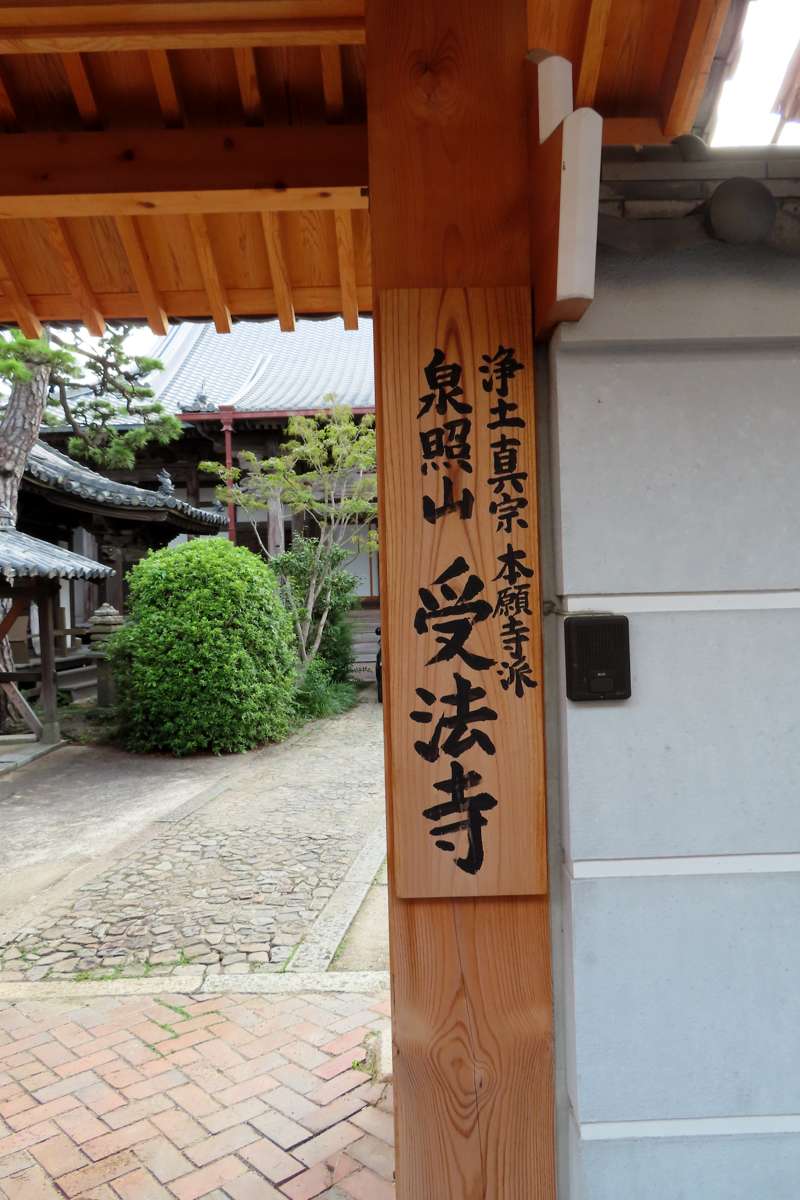 浄土真宗本願寺派
泉照山 受法寺